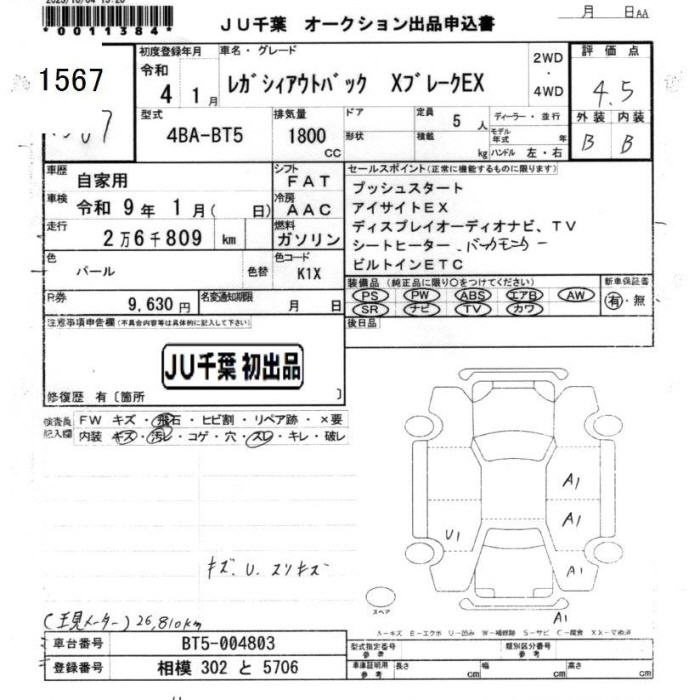 *0011384*
JU千葉 オークション出品申込書
月 日AA
1567
初度登録年月
令和
4 1月
車名・グレード
レガシィアウトバック XブレークEX
2WD
・
4WD
評価点
4.5
外装 内装
B B
型式
4BA-BT5
排気量
1800
cc
ドア
形状
定員 5 人
積載 kg
ディーラー・並行
モデル年式 年
ハンドル 左・右
車歴 自家用
シフト FAT
車検 令和 9年 1月( 日)
冷房 AAC
走行 2万6千809 km
燃料 ガソリン
色 パール 色替
色コード K1X
R券 9,630 円
名変通知期限 月 日
セールスポイント(正常に機能するものに限ります)
プッシュスタート
アイサイトEX
ディスプレイオーディオナビ、TV
シートヒーター、バックカモニター
ビルトインETC
装備品(純正品に限り○をつけてください)
PS PW ABS エアB AW
SR ナビ TV カワ
新車保証書
有・無
後日品
注意事項申告欄(不具合内容等は具体的に記入して下さい)
JU千葉 初出品
修復歴 有〔箇所 〕
検査員記入欄
FW キズ・飛石・ヒビ割・リペア跡・×要
内装 キズ・汚レ・コゲ・穴・スレ・キレ・破レ
A1
A1
U1
A1
A1
キズ、U、スリキズ
スペア
(現メーター) 26,810km
A-キズ E-エクボ U-凹み W-補修跡 S-サビ C-腐食 XX-交換済
車台番号 BT5-004803
登録番号 相模 302 と 5706
型式指定番号 参考
類別区分番号 参考
車庫証明用 参考
長さ cm 幅 cm 高さ cm